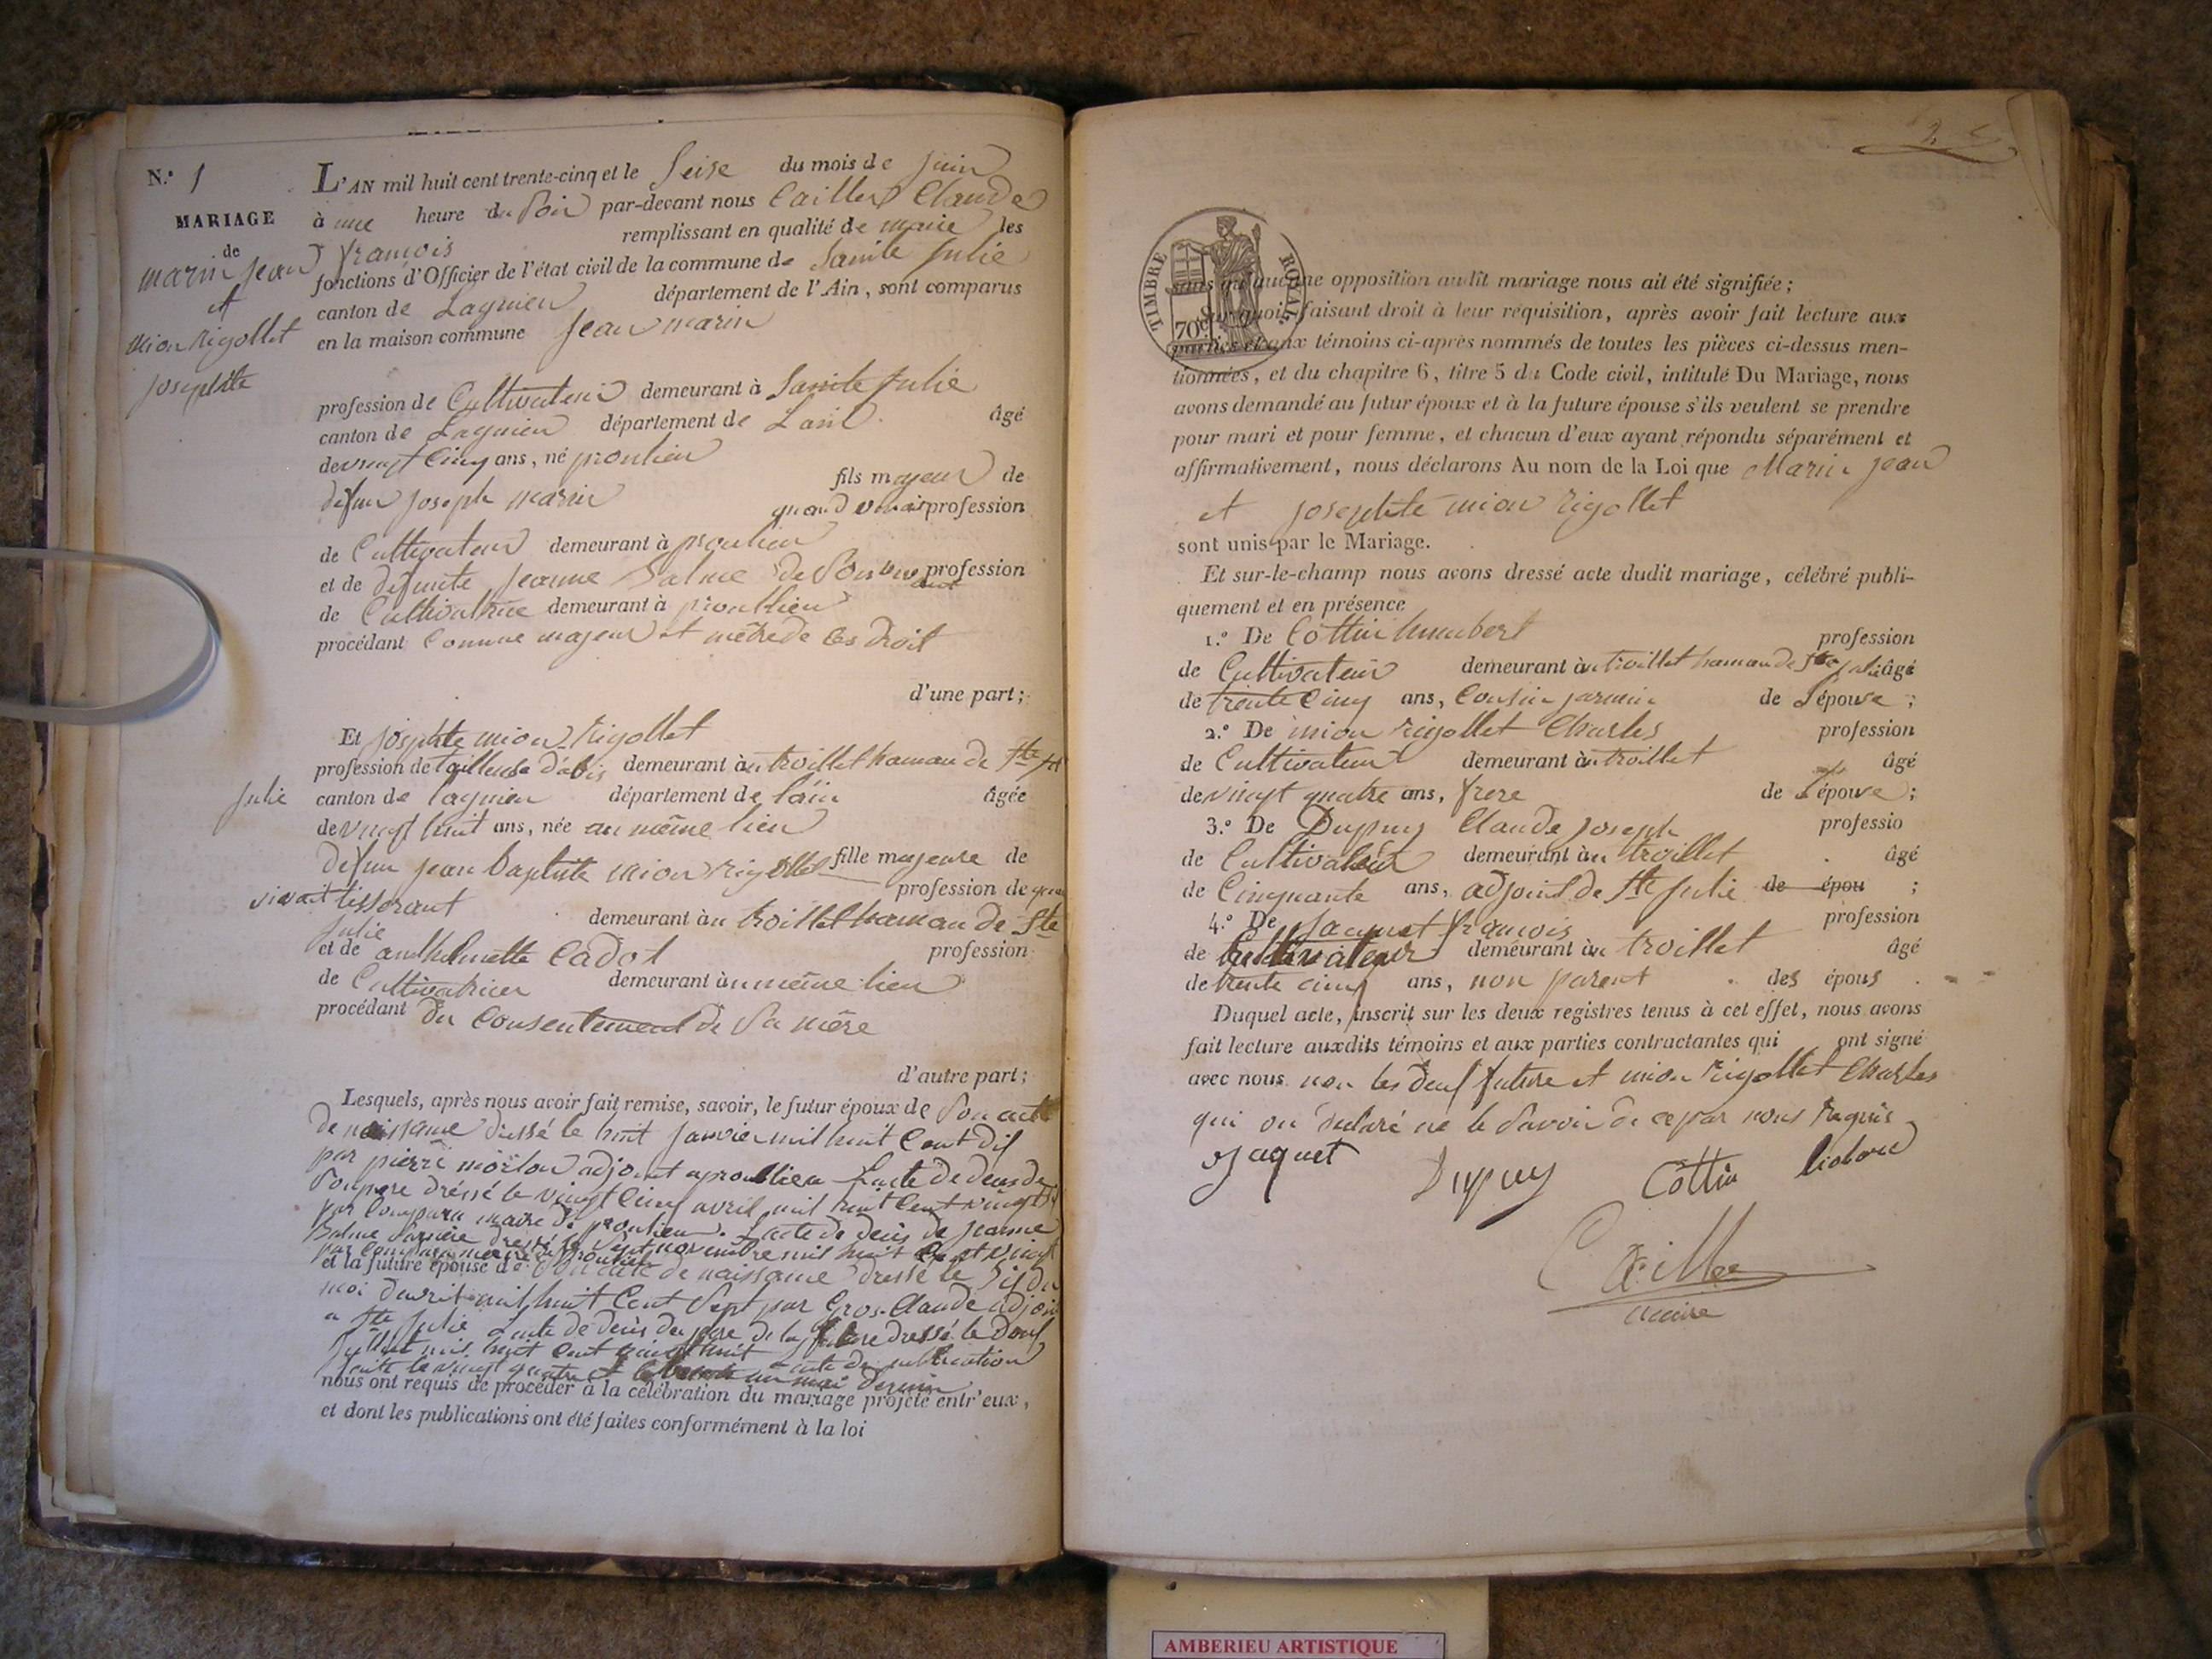 N.° 1
MARIAGE
de
marin jean françois
et
mion rigollet
josephte
L'AN mil huit cent trente-cinq et le Seise du mois de juin
à une heure du Soir par-devant nous Caillet Claude
remplissant en qualité de maire les
fonctions d'Officier de l'état civil de la commune de Sainte Julie
canton de Lagnieu département de l'Ain, sont comparus
en la maison commune jean marin
profession de Cultivateur demeurant à Sainte Julie
canton de Lagnieu département de Lain âgé
de vingt Cinq ans, né proulieu
fils majeur de
defun joseph marin quand vivais profession
de Cultivateur demeurant à proulieu
et de defunte jeanne Balme de Son vivant profession
de Cultivatrice demeurant à proullieu
procédant Comme majeur et mêtre de ces droit
d'une part;
Et josephte mion Rigollet
profession de tailleuse d'abis demeurant à troillet hamau de Ste
julie canton de lagnieu département de lain âgée
de vingt huit ans, née au même lieu
fille majeure de
defun jean baptiste mion rigollet profession de quan
vivait tisserant demeurant àu troillet hamau de Ste
julie
et de anthelmette Cadot profession
de Cultivatrice demeurant àu même lieu
procédant du Consentement de Sa mêre
d'autre part;
Lesquels, après nous avoir fait remise, savoir, le futur époux de Son acte
de naissance dressé le huit janvier mil huit Cent dix
par pierre adjoint a proullieu Lacte de deces de
Son pere dréssé le vingt Cinq avril mil huit Cent vingt
par maire de proulieu. Lacte de deces de jeanne
Balme Sa mère dressé le Sept novembre mil huit Cent vingt
par maire de proulieu
et la future épouse de Son acte de naissance dressé le dix du
moi davril mil huit Cent Sept par Gros Claude adjoin
a Ste Julie Lacte de deces du pere de la future dressé le
juillet mil huit Cent vingt huit acte de publication
faite le vingt quatre et mai dernier
nous ont requis de procéder à la célébration du mariage projeté entr'eux,
et dont les publications ont été faites conformément à la loi
TIMBRE ROYAL
70c
sans qu'aucune opposition audit mariage nous ait été signifiée;
Sur quoi, faisant droit à leur réquisition, après avoir fait lecture aux
parties et aux témoins ci-après nommés de toutes les pièces ci-dessus men-
tionnées, et du chapitre 6, titre 5 du Code civil, intitulé Du Mariage, nous
avons demandé au futur époux et à la future épouse s'ils veulent se prendre
pour mari et pour femme, et chacun d'eux ayant répondu séparément et
affirmativement, nous déclarons Au nom de la Loi que Marin jean
et josephte mion rigollet
sont unis par le Mariage.
Et sur-le-champ nous avons dressé acte dudit mariage, célébré publi-
quement et en présence
1.° De Cottin humbert profession
de Cultivateur demeurant àu troillet hamau de Ste julie âgé
de trente Cinq ans, Cousin jarmin de L'épouse;
2.° De mion rigollet Charles profession
de Cultivateur demeurant àu troillet âgé
de vingt quatre ans, frere de L'épouse;
3.° De Dupuy Claude joseph professio
de Cultivateur demeurant àu troillet âgé
de Cinquante ans, adjoint de Ste Julie de épou ;
4.° De Jacquet françois profession
de Cultivateur demeurant àu troillet âgé
de trente cinq ans, non parent des épous
Duquel acte, inscrit sur les deux registres tenus à cet effet, nous avons
fait lecture auxdits témoins et aux parties contractantes qui ont signé
avec nous non les deux future et mion rigollet Charles
qui on déclaré ne le Savoir de ce par nous Raquis
Jaquet Dupuy Cottin
Caillet
maire
AMBERIEU ARTISTIQUE